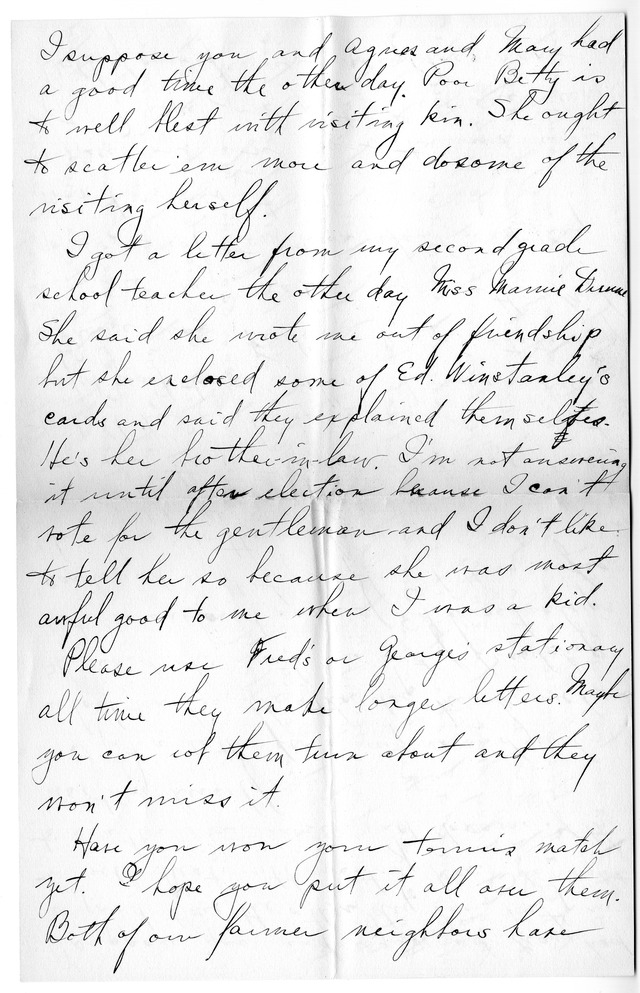 I suppose you and Agnes and Mary had
a good time the other day. Poor Betty is
to well blest with visiting kin. She ought
to scatter em more and do some of the
visiting herself.
I got a letter from my second grade
school teacher the other day Miss Mamie Dunne
She said she wrote me out of friendship
but she enclosed some of Ed. Winstanley's
cards and said they explained themselves.
He's her brother-in-law. I'm not answering
it until after election because I can't
vote for the gentleman and I don't like
to tell her so because she was most
awful good to me when I was a kid.
Please use Fred's or George's stationary
all time they make longer letters. Maybe
you can rob them turn about and they
won't miss it.
Have you won your tennis match
yet. I hope you put it all over them.
Both of our farmer neighbors have